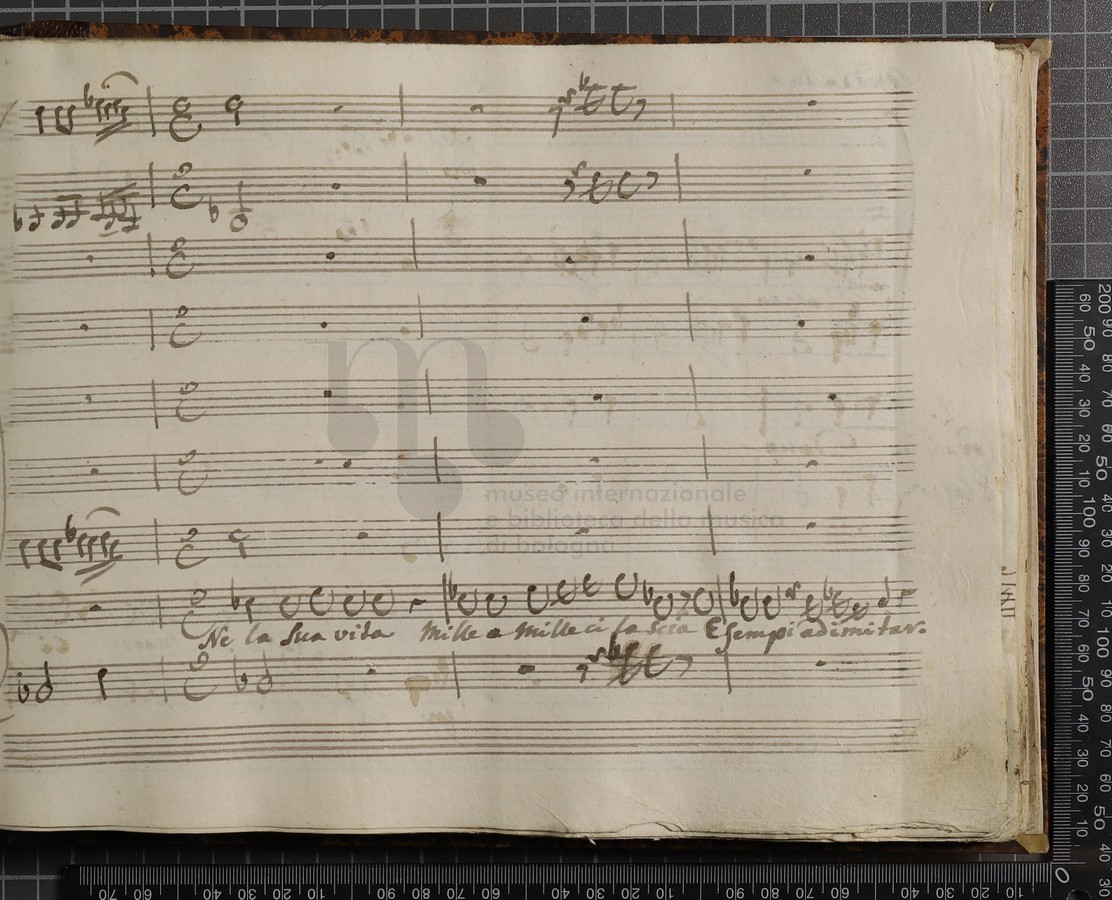 museo internazionale
e biblioteca della musica
di bologna
Ne la Sua vita Mille a Mille ci lascia Esempi ad imitar.